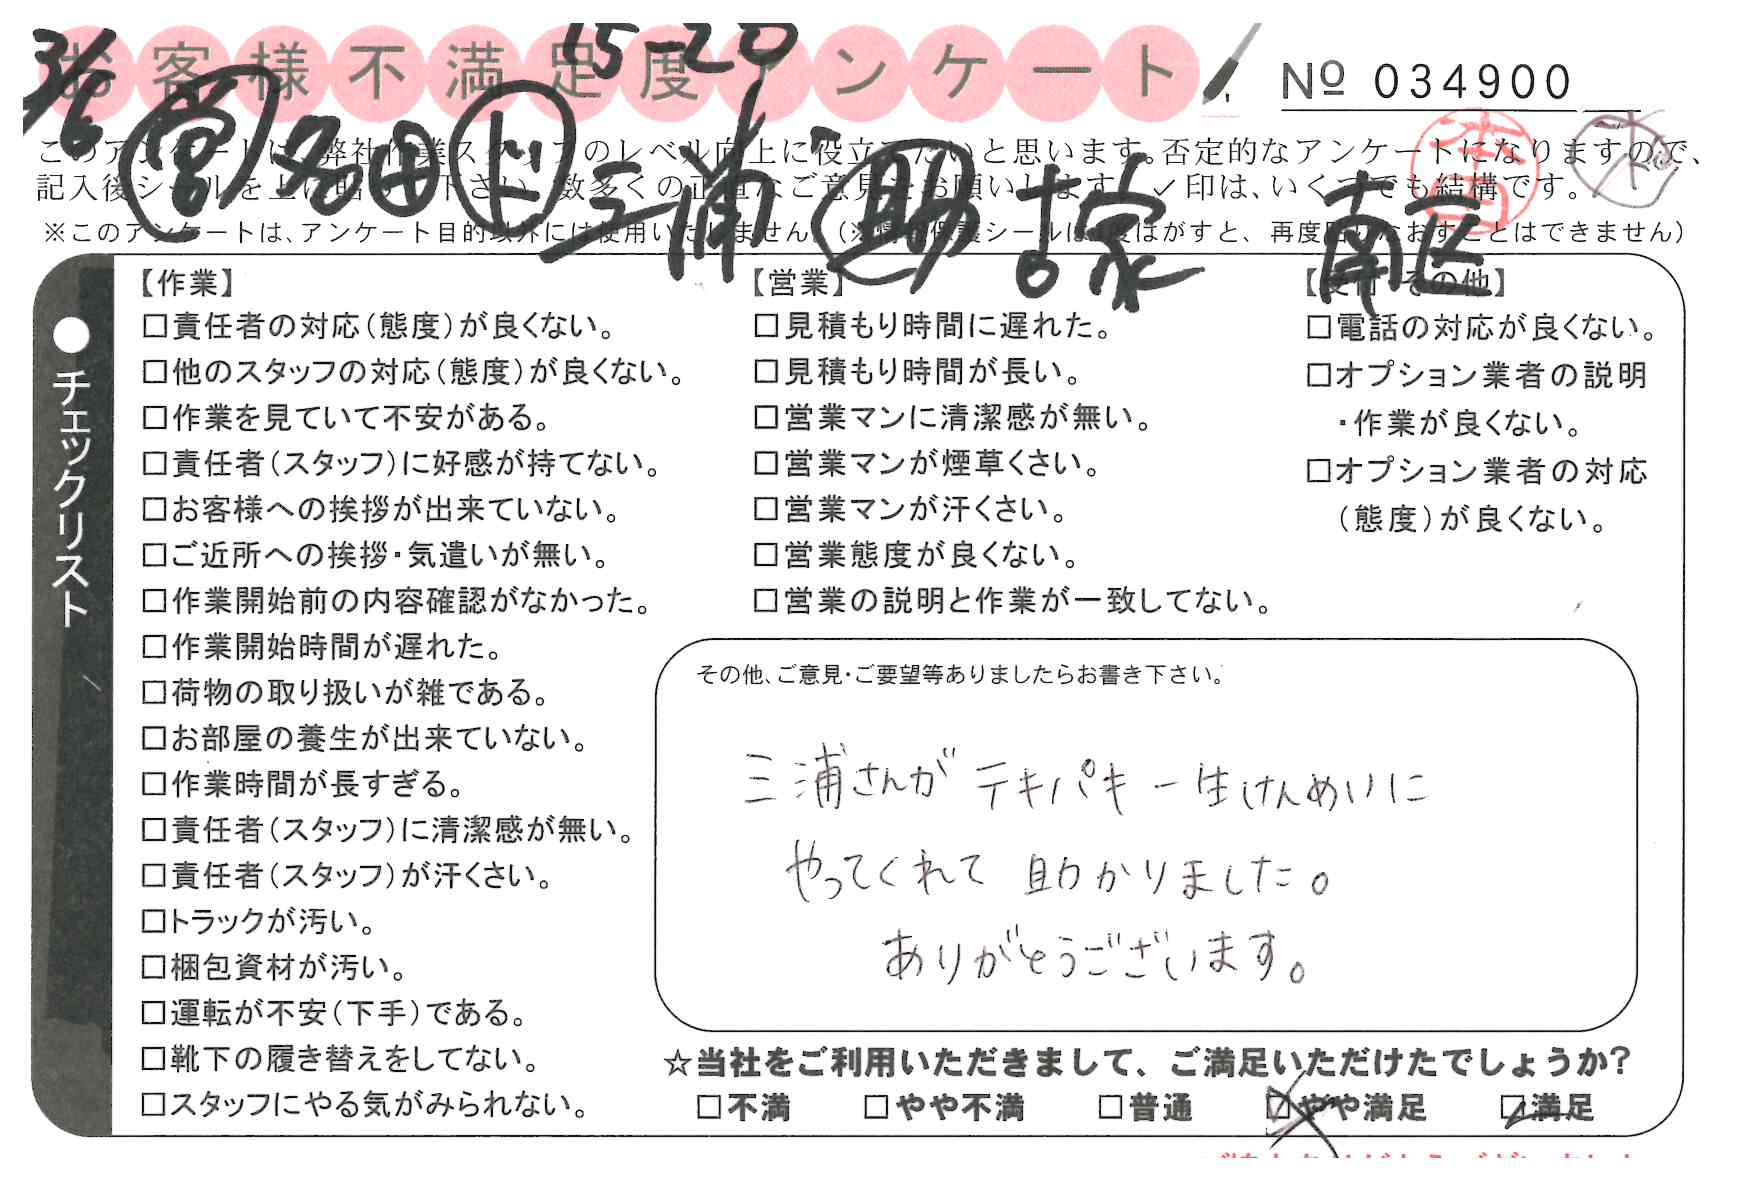 お客様不満足度アンケート
№ 034900
3/6
15-20
営 名田 ド 三浦 助 古家 南区
このアンケートは、弊社作業スタッフのレベル向上に役立てたいと思います。否定的なアンケートになりますので、
記入後シールを上に貼って下さい。数多くの正直なご意見をお願いします。✓印は、いくつでも結構です。
※このアンケートは、アンケート目的以外には使用いたしません。(※情報保護シールは1度はがすと、再度貼りなおすことはできません)
●チェックリスト
【作業】
□責任者の対応(態度)が良くない。
□他のスタッフの対応(態度)が良くない。
□作業を見ていて不安がある。
□責任者(スタッフ)に好感が持てない。
□お客様への挨拶が出来ていない。
□ご近所への挨拶・気遣いが無い。
□作業開始前の内容確認がなかった。
□作業開始時間が遅れた。
□荷物の取り扱いが雑である。
□お部屋の養生が出来ていない。
□作業時間が長すぎる。
□責任者(スタッフ)に清潔感が無い。
□責任者(スタッフ)が汗くさい。
□トラックが汚い。
□梱包資材が汚い。
□運転が不安(下手)である。
□靴下の履き替えをしてない。
□スタッフにやる気がみられない。
【営業】
□見積もり時間に遅れた。
□見積もり時間が長い。
□営業マンに清潔感が無い。
□営業マンが煙草くさい。
□営業マンが汗くさい。
□営業態度が良くない。
□営業の説明と作業が一致してない。
【受付・その他】
□電話の対応が良くない。
□オプション業者の説明
・作業が良くない。
□オプション業者の対応
(態度)が良くない。
その他、ご意見・ご要望等ありましたらお書き下さい。
三浦さんが テキパキ 一生けんめいに
やってくれて 助かりました。
ありがとうございます。
☆当社をご利用いただきまして、ご満足いただけたでしょうか?
□不満 □やや不満 □普通 □やや満足 ☑満足